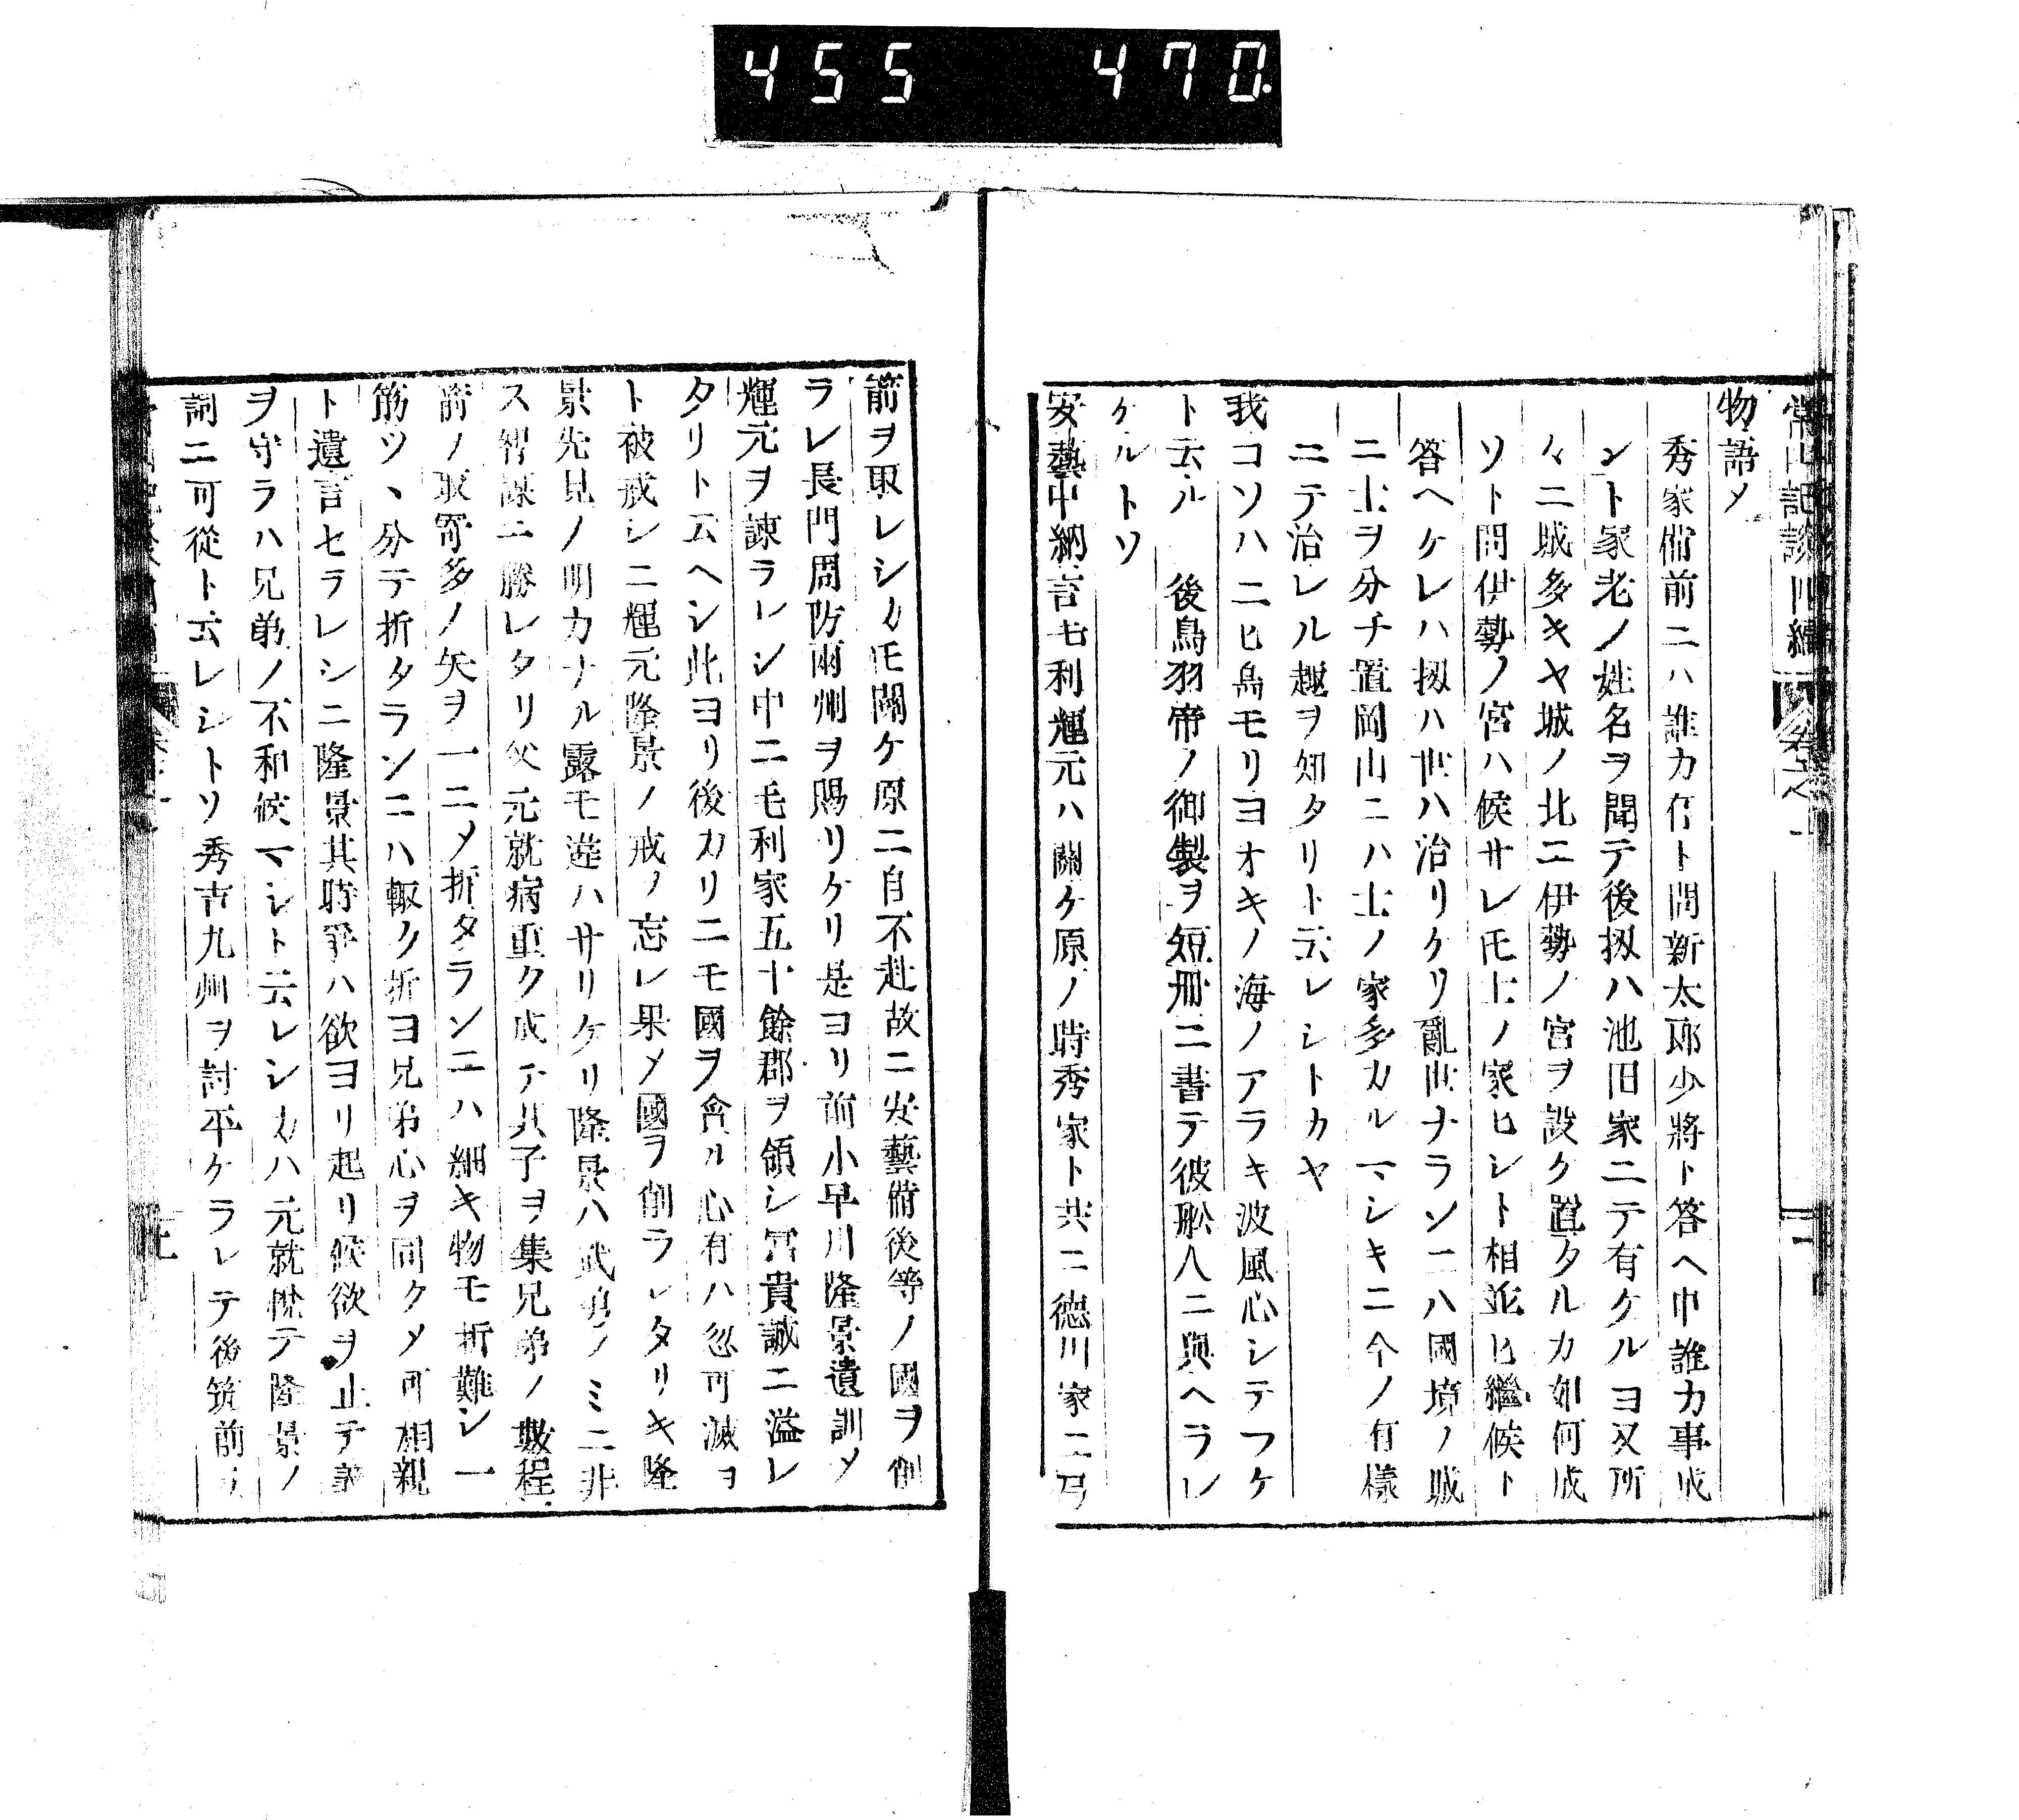 455 470.
物語メ
秀家備前ニハ誰カ有ト問新太郎少將ト答ヘ申誰カ事成
ント家老ノ姓名ヲ聞テ後扨ハ池田家ニテ有ケルヨ又所
々ニ城多キヤ城ノ北ニ伊勢ノ宮ヲ設ク置タルカ如何成
ソト問伊勢ノ宮ハ候サレ𪜈士ノ家ヒシト相並ヒ繼候ト
答ヘケレハ扨ハ世ハ治リケリ亂世ナランニハ國境ノ城
ニ士ヲ分チ置岡山ニハ士ノ家多カルマシキニ今ノ有樣
ニテ治レル趣ヲ知タリト云レシトカヤ
我コソハニヒ島モリヨオキノ海ノアラキ波風心シテフケ
ト云ル 後鳥羽帝ノ御製ヲ短冊ニ書テ彼舩人ニ與ヘラレ
ケルトソ
安藝中納言毛利輝元ハ關ケ原ノ時秀家ト共ニ德川家ニ弓
箭ヲ取レシカ𪜈關ケ原ニ自不赴故ニ安藝備後等ノ國ヲ削
ラレ長門周防兩州ヲ賜リケリ是ヨリ前小早川隆景遺訓メ
輝元ヲ諫ラレシ中ニ毛利家五十餘郡ヲ領シ冨貴誠ニ溢レ
タリト云ヘシ此ヨリ後カリニモ國ヲ貪ル心有ハ忽可滅ヨ
ト被戒シニ輝元隆景ノ戒ヲ忘レ果メ國ヲ削ラレタリキ隆
景先見ノ明カナル露モ違ハサリケリ隆景ハ武勇ノミニ非
ス智謀ニ勝レタリ父元就病重ク成テ其子ヲ集兄弟ノ數程
箭ノ取寄多ノ矢ヲ一ニメ折タランニハ細キ物モ折難シ一
筋ツヽ分テ折タランニハ輙ク折ヨ兄弟心ヲ同クメ可相親
ト遺言セラレシニ隆景其時爭ハ欲ヨリ起リ候欲ヲ止テ義
ヲ守ラハ兄弟ノ不和候マシト云レシカハ元就悦テ隆景ノ
詞ニ可從ト云レシトソ秀吉九州ヲ討平ケラレテ後筑前ヲ